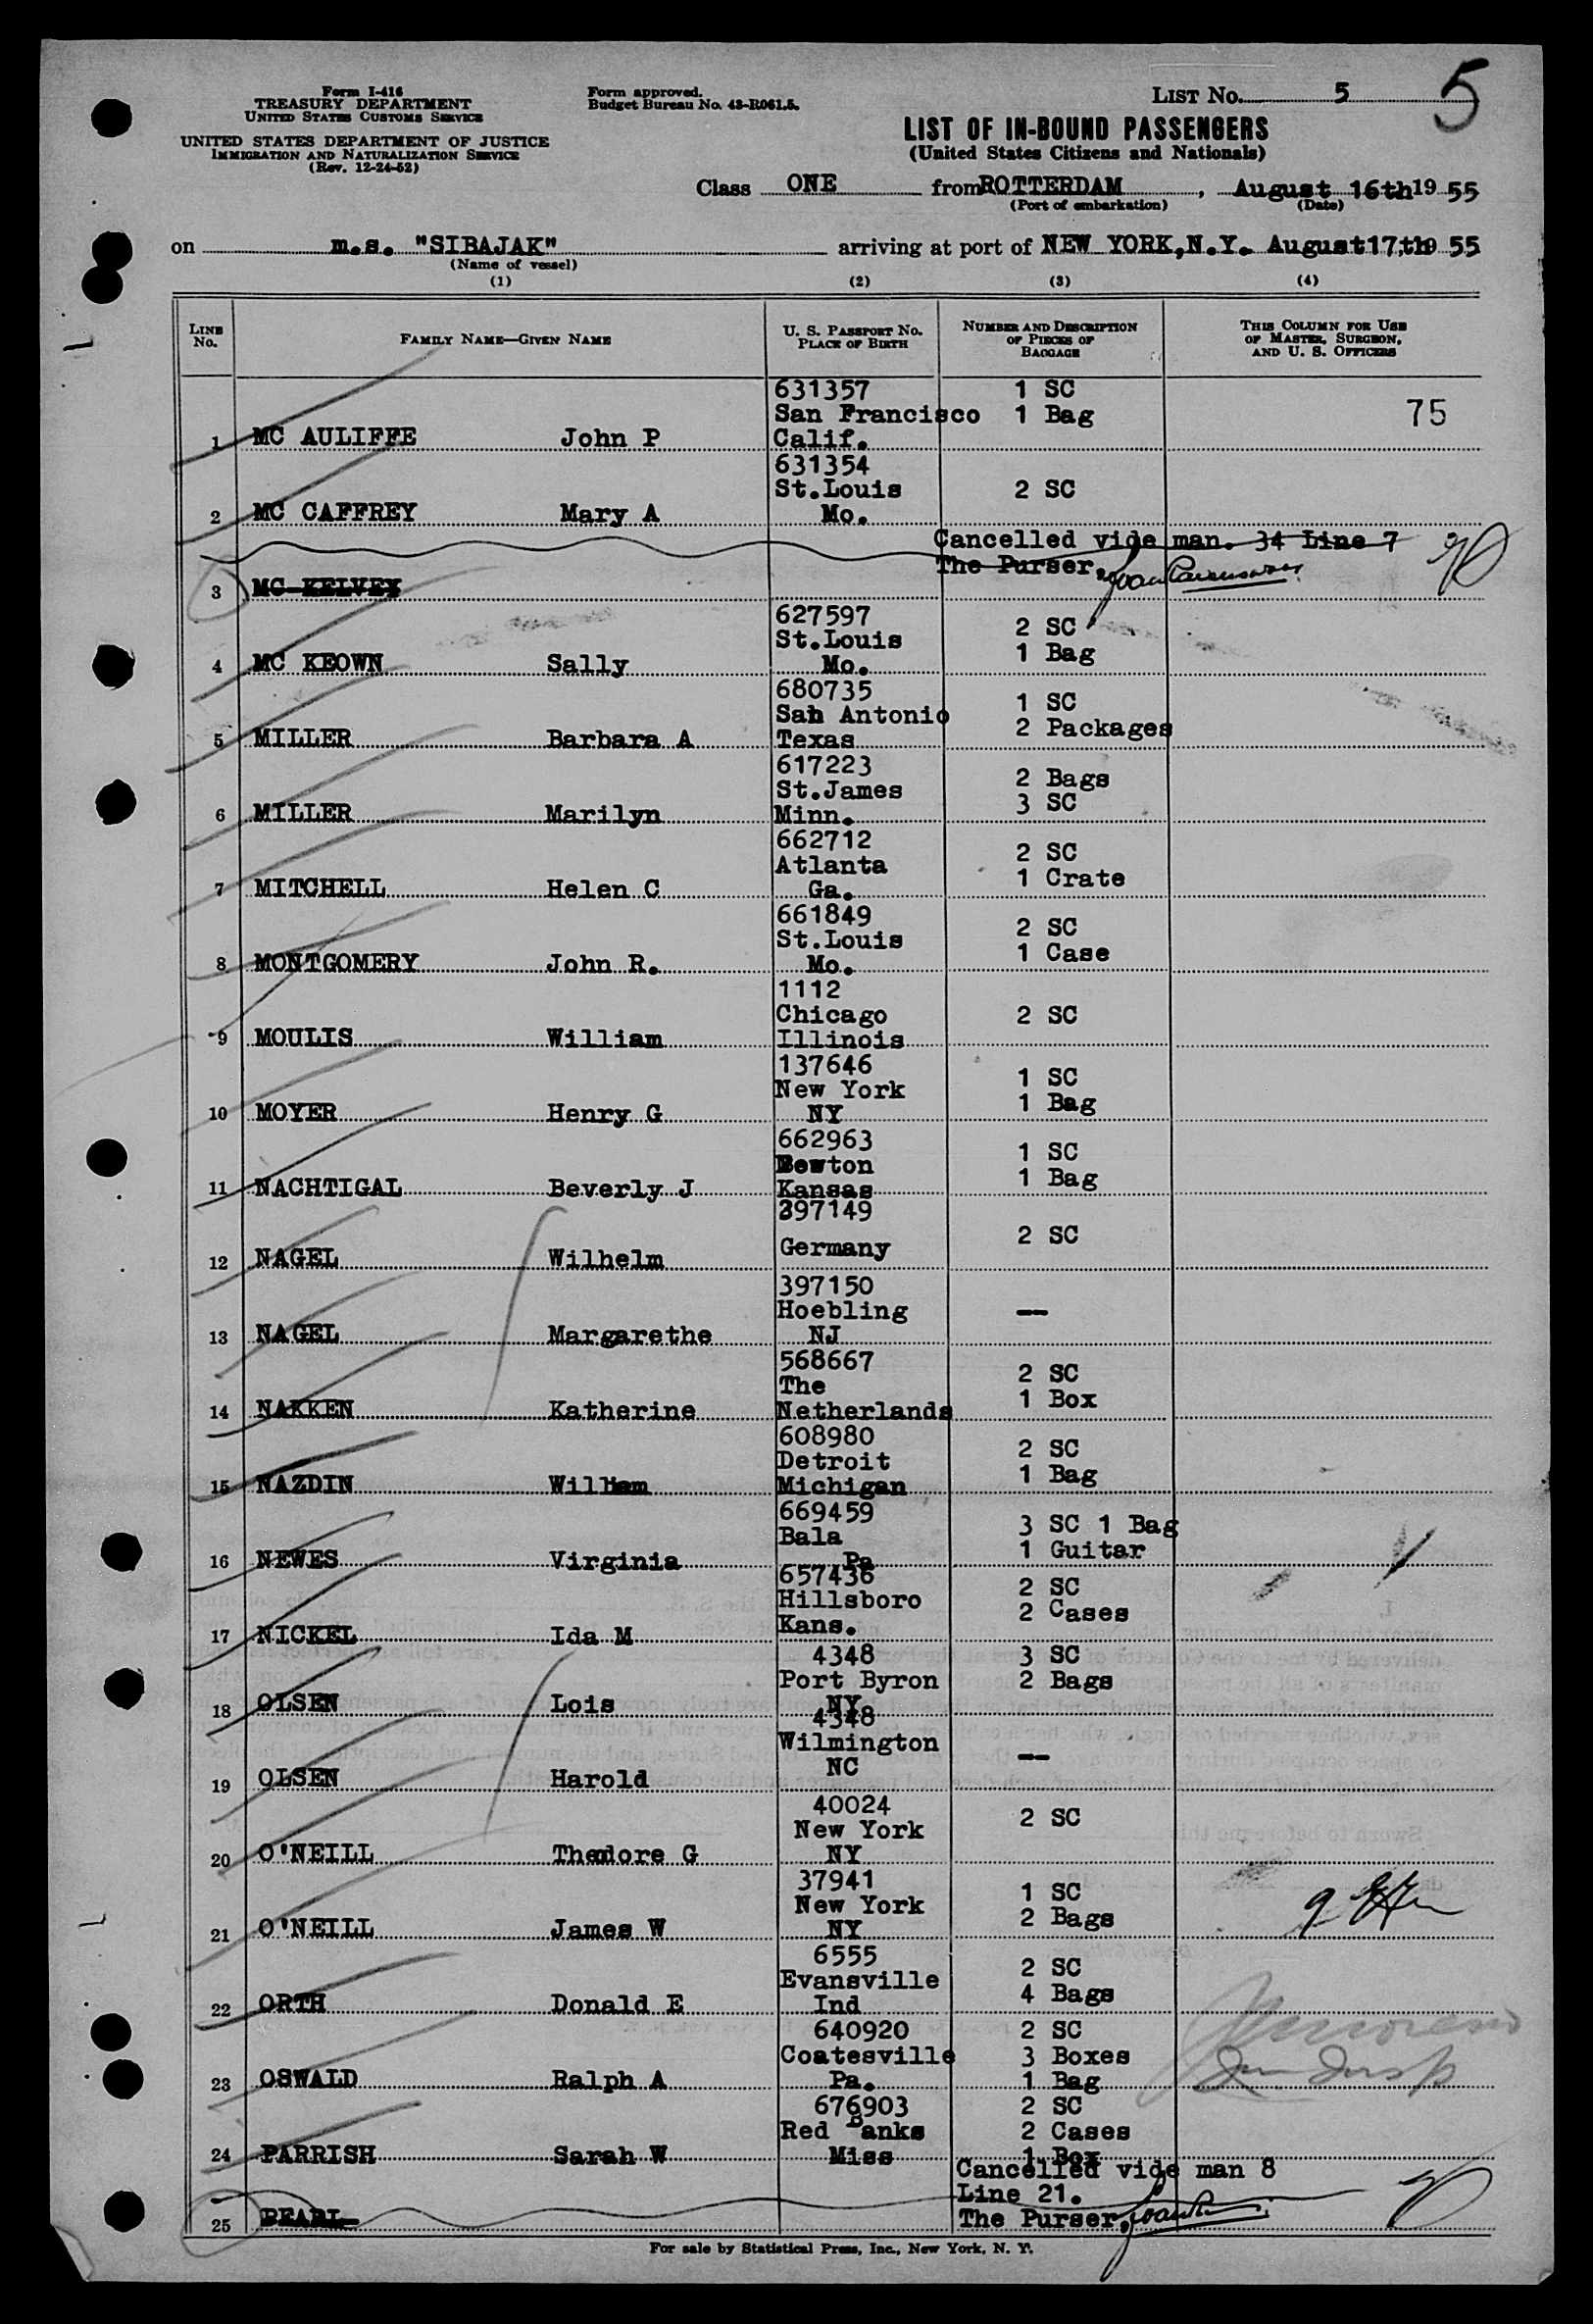 5
Form I-416
TREASURY DEPARTMENT
UNITED STATES CUSTOMS SERVICE
UNITED STATES DEPARTMENT OF JUSTICE
IMMIGRATION AND NATURALIZATION SERVICE
(Rev. 12-24-52)
Form approved.
Budget Bureau No. 43-R061.5.
LIST NO. 5
LIST OF IN-BOUND PASSENGERS
(United States Citizens and Nationals)
Class ONE from ROTTERDAM, August 16th 19 55
(Port of embarkation) (Date)
on m.s. "SIBAJAK" arriving at port of NEW YORK, N.Y. August 17th, 19 55
(Name of vessel)
(1) (2) (3) (4)
LINE NO. FAMILY NAME—GIVEN NAME U. S. PASSPORT NO. PLACE OF BIRTH NUMBER AND DESCRIPTION OF PIECES OF BAGGAGE THIS COLUMN FOR USE OF MASTER, SURGEON, AND U. S. OFFICERS
631357 1 SC
San Francisco 1 Bag 75
1 MC AULIFFE John P Calif.
631354
St.Louis 2 SC
2 MC CAFFREY Mary A Mo.
Cancelled vide man. 34 Line 7
The Purser,
3 MC KELVEY
627597 2 SC
St.Louis 1 Bag
4 MC KEOWN Sally Mo.
680735 1 SC
San Antonio 2 Packages
5 MILLER Barbara A Texas
617223 2 Bags
St.James 3 SC
6 MILLER Marilyn Minn.
662712 2 SC
Atlanta 1 Crate
7 MITCHELL Helen C Ga.
661849 2 SC
St.Louis 1 Case
8 MONTGOMERY John R. Mo.
1112
Chicago 2 SC
9 MOULIS William Illinois
137646 1 SC
New York 1 Bag
10 MOYER Henry G NY
662963 1 SC
Newton 1 Bag
11 NACHTIGAL Beverly J Kansas
397149 2 SC
12 NAGEL Wilhelm Germany
397150
Hoebling --
13 NAGEL Margarethe NJ
568667 2 SC
The 1 Box
14 NAKKEN Katherine Netherlands
608980 2 SC
Detroit 1 Bag
15 NAZDIN William Michigan
669459 3 SC 1 Bag
Bala 1 Guitar
16 NEWES Virginia Pa
657436 2 SC
Hillsboro 2 Cases
17 NICKEL Ida M Kans.
4348 3 SC
Port Byron 2 Bags
18 OLSEN Lois NY
4348
Wilmington --
19 OLSEN Harold NC
40024 2 SC
New York
20 O'NEILL Theodore G NY
37941 1 SC
New York 2 Bags
21 O'NEILL James W NY
6555 2 SC
Evansville 4 Bags
22 ORTH Donald E Ind
640920 2 SC
Coatesville 3 Boxes
23 OSWALD Ralph A Pa. 1 Bag
676903 2 SC
Red Banks 2 Cases
24 PARRISH Sarah W Miss 1 Box
Cancelled vide man 8
Line 21.
25 PEARL The Purser,
For sale by Statistical Press, Inc., New York, N. Y.